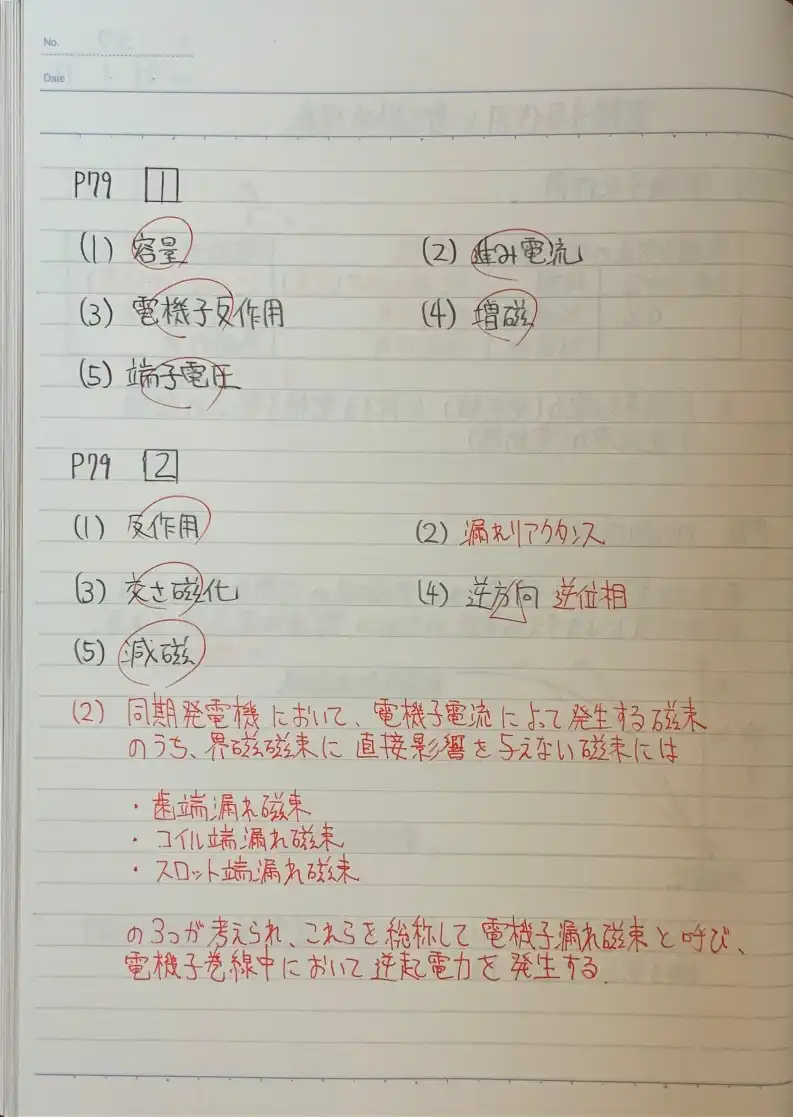 No.
Date
P79 1
(1) 容量 (2) 進み電流
(3) 電機子反作用 (4) 増磁
(5) 端子電圧
P79 2
(1) 反作用 (2) 漏れリアクタンス
(3) 交さ磁化 (4) 逆方向 逆位相
(5) 減磁
(2) 同期発電機において、電機子電流によって発生する磁束
のうち、界磁磁束に直接影響を与えない磁束には
・歯端漏れ磁束
・コイル端漏れ磁束
・スロット端漏れ磁束
の3つが考えられ、これらを総称して電機子漏れ磁束と呼び、
電機子巻線中において逆起電力を発生する.